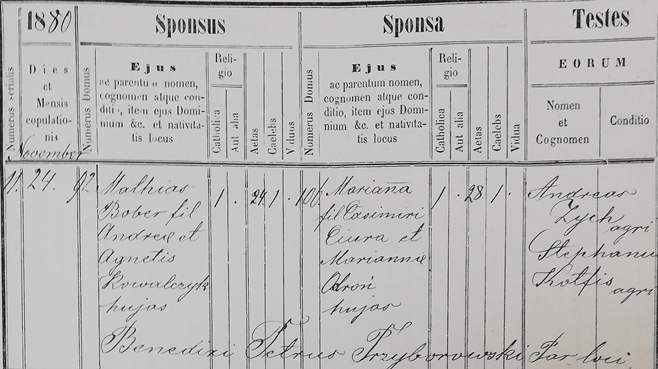 1880
Sponsus
Sponsa
Testes
Numerus serialis
Dies
et
Mensis
copulatio-
nis
November
Numerus Domus
Ejus
ac parentum nomen,
cognomen atque con-
ditio, item ejus Domi-
nium &c. et nativita-
tis locus
Religio
Catholica
Aut alia
Aetas
Caelebs
Viduus
Numerus Domus
Ejus
ac parentum nomen,
cognomen atque con-
ditio, item ejus Domi-
nium &c. et nativita-
tis locus
Religio
Catholica
Aut alia
Aetas
Caelebs
Vidua
EORUM
Nomen
et
Cognomen
Conditio
11. 24. 92
Mathias
Bober fil
Andreæ et
Agnetis
Kowalczyk
hujas
1 . 24. 1 .
106.
Marianna
fil Casimiri
Ciura et
Mariannæ
hujas
1 . 28 1 .
Andreas
Zych
agri
Stephanus
Kotfis
agri
Benedixi Petrus Przyborowski Par loci